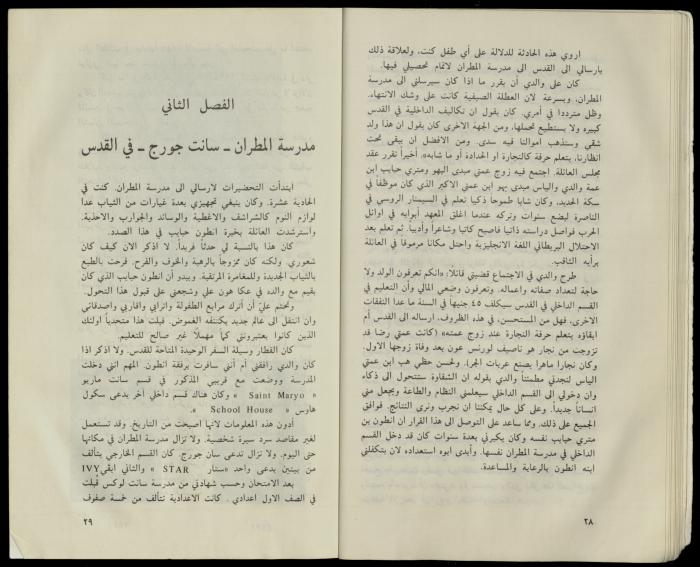 اروي هذه الحادثة للدلالة على أي طفل كنت، ولعلاقة ذلك
بارسالي الى القدس الى مدرسة المطران لاتمام تحصيلي فيها.
كان على والدي أن يقرر ما اذا كان سيرسلني الى مدرسة
المطران، وبسرعة لان العطلة الصيفية كانت على وشك الانتهاء.
وظل مترددا في أمري. كان يقول ان تكاليف الداخلية في القدس
كبيره ولا يستطيع تحملها، ومن الجهة الاخرى كان يقول ان هذا ولد
شقي وستذهب اموالنا فيه سدى. ومن الافضل ان يبقى تحت
انظارنا، يتعلم حرفة كالنجارة او الحدادة أو ما شابه. أخيراً تقرر عقد
مجلس العائلة. اجتمع فيه زوج عمتي مبدى اليهو ومتري حبايب ابن
عمة والدي والياس مبدى يهو ابن عمتي الاكبر الذي كان موظفاً في
سكة الحديد، وكان شابا طموحا ذكيا تعلم في السيمنار الروسي في
الناصرة لبضع سنوات وتركه عندما اغلق المعهد أبوابه في اوائل
الحرب فواصل دراسته ذاتيا فاصبح كاتبا وشاعراً وأديبا. ثم تعلم بعد
الاحتلال البريطاني اللغة الانجليزية واحتل مكانا مرموقا في العائلة
برأيه الثاقب.
طرح والدي في الاجتماع قضيتي قائلا: «انكم تعرفون الولد ولا
حاجة لتعداد صفاته واعماله. وتعرفون وضعي المالي وأن التعليم في
القسم الداخلي في القدس سيكلف ٤٥ جنيهاً في السنة ما عدا النفقات
الاخرى، فهل من المستحسن، في هذه الظروف، ارساله الى القدس أم
ابقاؤه يتعلم حرفة النجارة عند زوج عمته» (كانت عمتي رضا قد
تزوجت من نجار هو ناصيف لورنس عون بعد وفاة زوجها الاول.
وكان نجارا ماهرا يصنع عربات الجر). ولحسن حظي هب ابن عمتي
الياس لنجدتي مطمئناً والدي بقوله ان الشقاوة ستتحول الى ذكاء
وان دخولي الى القسم الداخلي سيعلمني النظام والطاعة ويجعل مني
انساناً جديداً. وعلى كل حال يمكننا ان نجرب ونرى النتائج. فوافق
الجميع على ذلك. ومما ساعد على التوصل الى هذا القرار ان انطون بن
متري حبايب نفسه وكان يكبرني بعدة سنوات كان قد دخل القسم
الداخلي في مدرسة المطران نفسها. وأبدى ابوه استعداده لان يتكفلني
ابنه انطون بالرعاية والمساعدة.
٢٨
الفصل الثاني
مدرسة المطران - سانت جورج - في القدس
ابتدأت التحضيرات لارسالي الى مدرسة المطران. كنت في
الحادية عشرة. وكان ينبغي تجهيزي بعدة غيارات من الثياب عدا
لوازم النوم كالشراشف والاغطية والوسائد والجوارب والاحذية.
واسترشدت العائلة بخبرة انطون حبايب في هذا الصدد.
كان هذا بالنسبة لي حدثاً فريداً. لا اذكر الان كيف كان
شعوري. ولكنه كان ممزوجاً بالرهبة والخوف والفرح. فرحت بالطبع
بالثياب الجديدة وللمغامرة المرتقبة. ويبدو أن انطون حبايب الذي كان
يقيم مع والده في عكا هون علي وشجعني على قبول هذا التحول.
وتحتم عليّ أن أترك مرابع الطفولة واترابي واقاربي واصدقائي
وان انتقل الى عالم جديد يكتنفه الغموض. قبلت هذا متحدياً اولئك
الذين كانوا يعتبرونني كماً مهملاً غير صالح للتعليم.
كان القطار وسيلة السفر الوحيدة المتاحة للقدس. ولا اذكر اذا
كان والدي رافقني أم أنني سافرت برفقة انطون. المهم انني دخلت
المدرسة ووضعت مع قريبي المذكور في قسم سانت ماريو
« Saint Maryo » وكان هناك قسم داخلي آخر يدعى سكول
هاوس « School House ».
أدون هذه المعلومات لانها اصبحت من التاريخ. وقد تستعمل
لغير مقاصد سرد سيرة شخصية. ولا تزال مدرسة المطران في مكانها
حتى اليوم. ولا تزال تدعى سان جورج. كان القسم الخارجي يتألف
من بيتين يدعى واحد «ستار STAR » والثاني ايڤي IVY
بعد الامتحان وحسب شهادتي من مدرسة سانت لوكس قُبلت
في الصف الاول اعدادي. كانت الاعدادية تتألف من خمسة صفوف
٢٩